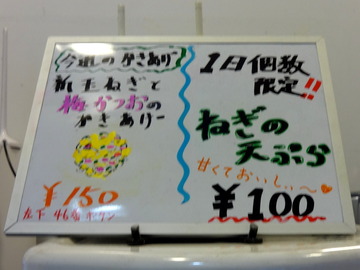 今週のかきあげ
新玉ねぎと
梅かつおの
かきあげ
¥150
左下 46番ボタン
1日個数
限定!!
ねぎの
天ぷら
甘くておいしい〜♥
¥100